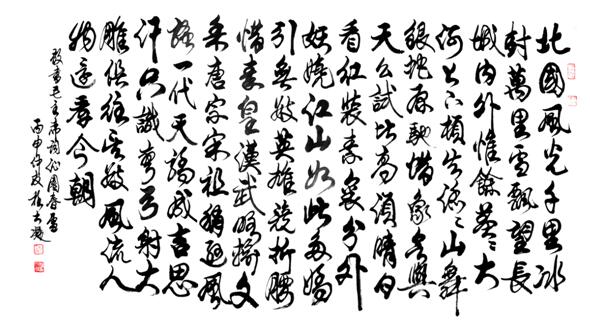 北國風光千里冰
封萬里雪飄望長
城内外惟餘莽々大
河上下頓失滔々山舞
銀蛇原馳蜡象欲與
天公試比高須晴日
看紅裝素裹分外
妖嬈江山如此多嬌
引無數英雄競折腰
惜秦皇漢武略輸文
采唐宗宋祖稍遜風
騷一代天驕成吉思
汗只識彎弓射大
雕俱往矣數風流人
物還看今朝
敬書毛主席詞沁園春雪
丙申仲夏